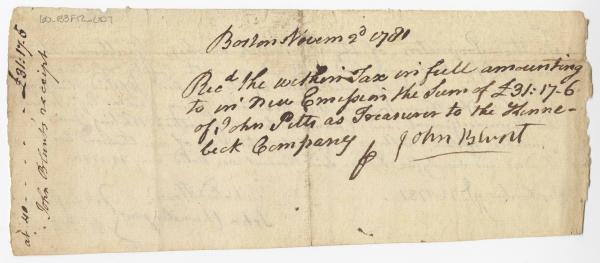 Boston Novem 2d 1781
Recd the within Tax in full amounting
to in new Emission the Sum of £31-17-6
of John Pitts as Treasurer to the Kenne-
beck Company
John Blunt
at 40 - - - - - £31.17.6
John Blunt's receipt